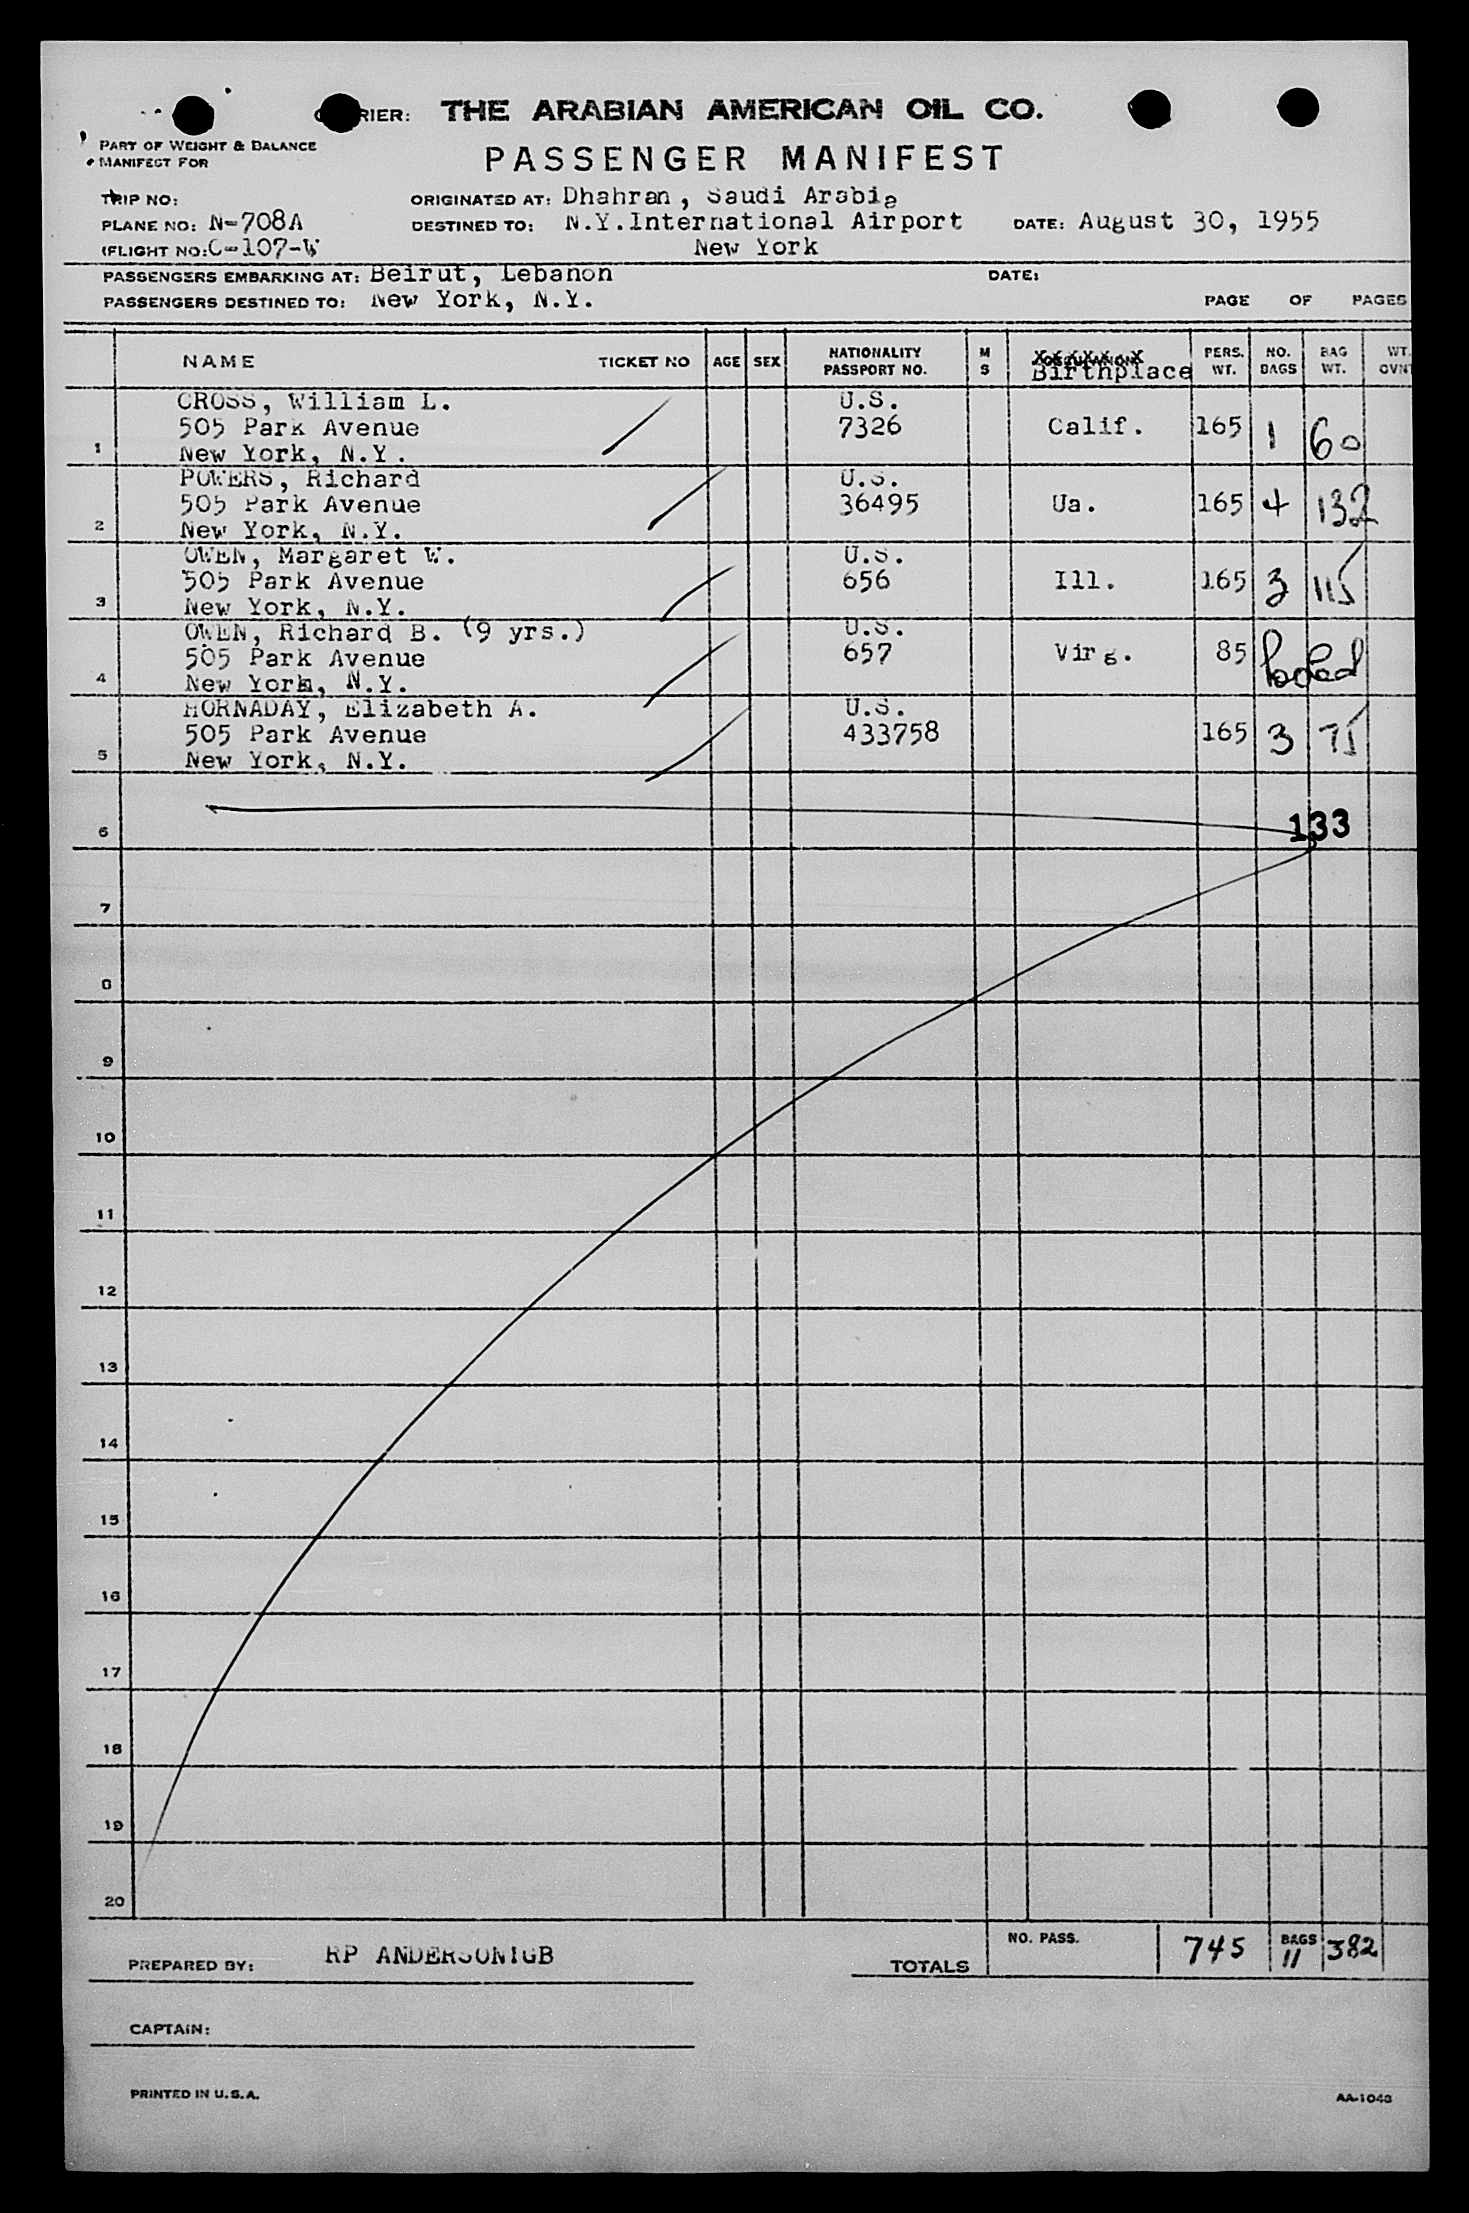 CARRIER: THE ARABIAN AMERICAN OIL CO.
PART OF WEIGHT & BALANCE
MANIFEST FOR
PASSENGER MANIFEST
TRIP NO:
ORIGINATED AT: Dhahran, Saudi Arabia
PLANE NO: N-708A
DESTINED TO: N.Y.International Airport
DATE: August 30, 1955
(FLIGHT NO: C-107-W
New York
PASSENGERS EMBARKING AT: Beirut, Lebanon
DATE:
PASSENGERS DESTINED TO: New York, N.Y.
PAGE OF PAGES
NAME TICKET NO AGE SEX NATIONALITY PASSPORT NO. M S Birthplace PERS. WT. NO. BAGS BAG WT. WT.
CROSS, William L. U.S.
505 Park Avenue 7326 Calif. 165 1 60
1 New York, N.Y.
POWERS, Richard U.S.
505 Park Avenue 36495 Ua. 165 4 132
2 New York, N.Y.
OWEN, Margaret W. U.S.
505 Park Avenue 656 Ill. 165 3 115
3 New York, N.Y.
OWEN, Richard B. (9 yrs.) U.S.
505 Park Avenue 657 Virg. 85
4 New York, N.Y.
HORNADAY, Elizabeth A. U.S.
505 Park Avenue 433758 165 3 75
5 New York, N.Y.
133
6
7
8
9
10
11
12
13
14
15
16
17
18
19
20
PREPARED BY: RP ANDERSON!GB
TOTALS NO. PASS. 745 BAGS 11 382
CAPTAIN:
PRINTED IN U.S.A.
AA-1048